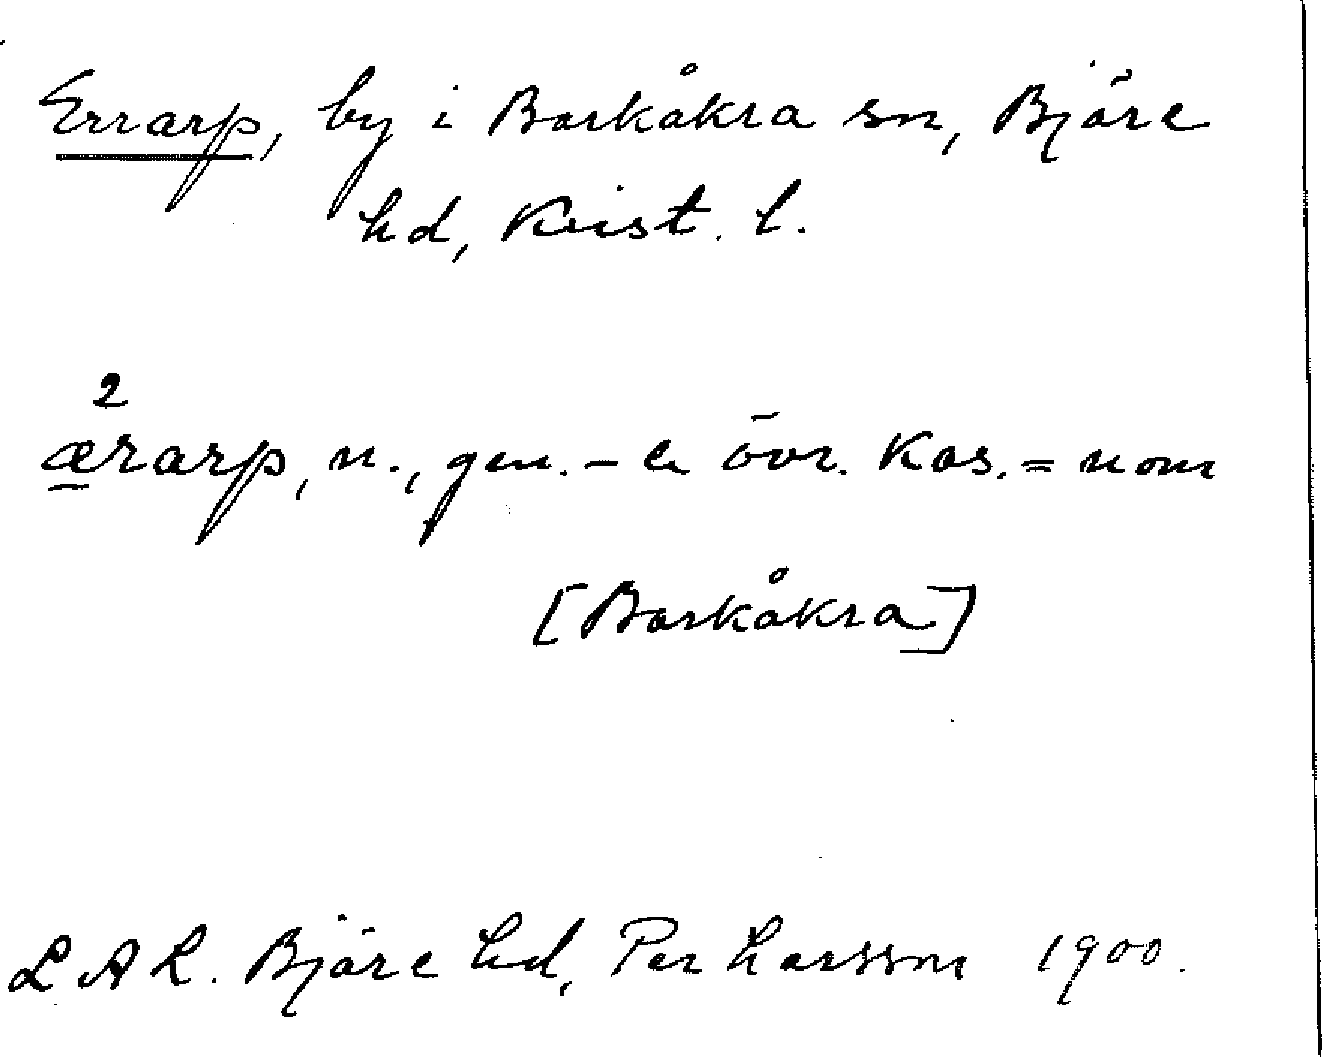 Errarp, by i Barkåkra sn, Bjäre
hd, Krist. l.
2
ærarp, n., gen. – & övr. Kas. = nom
[Barkåkra]
L A L. Bjäre hd, Per Larsson 1900.